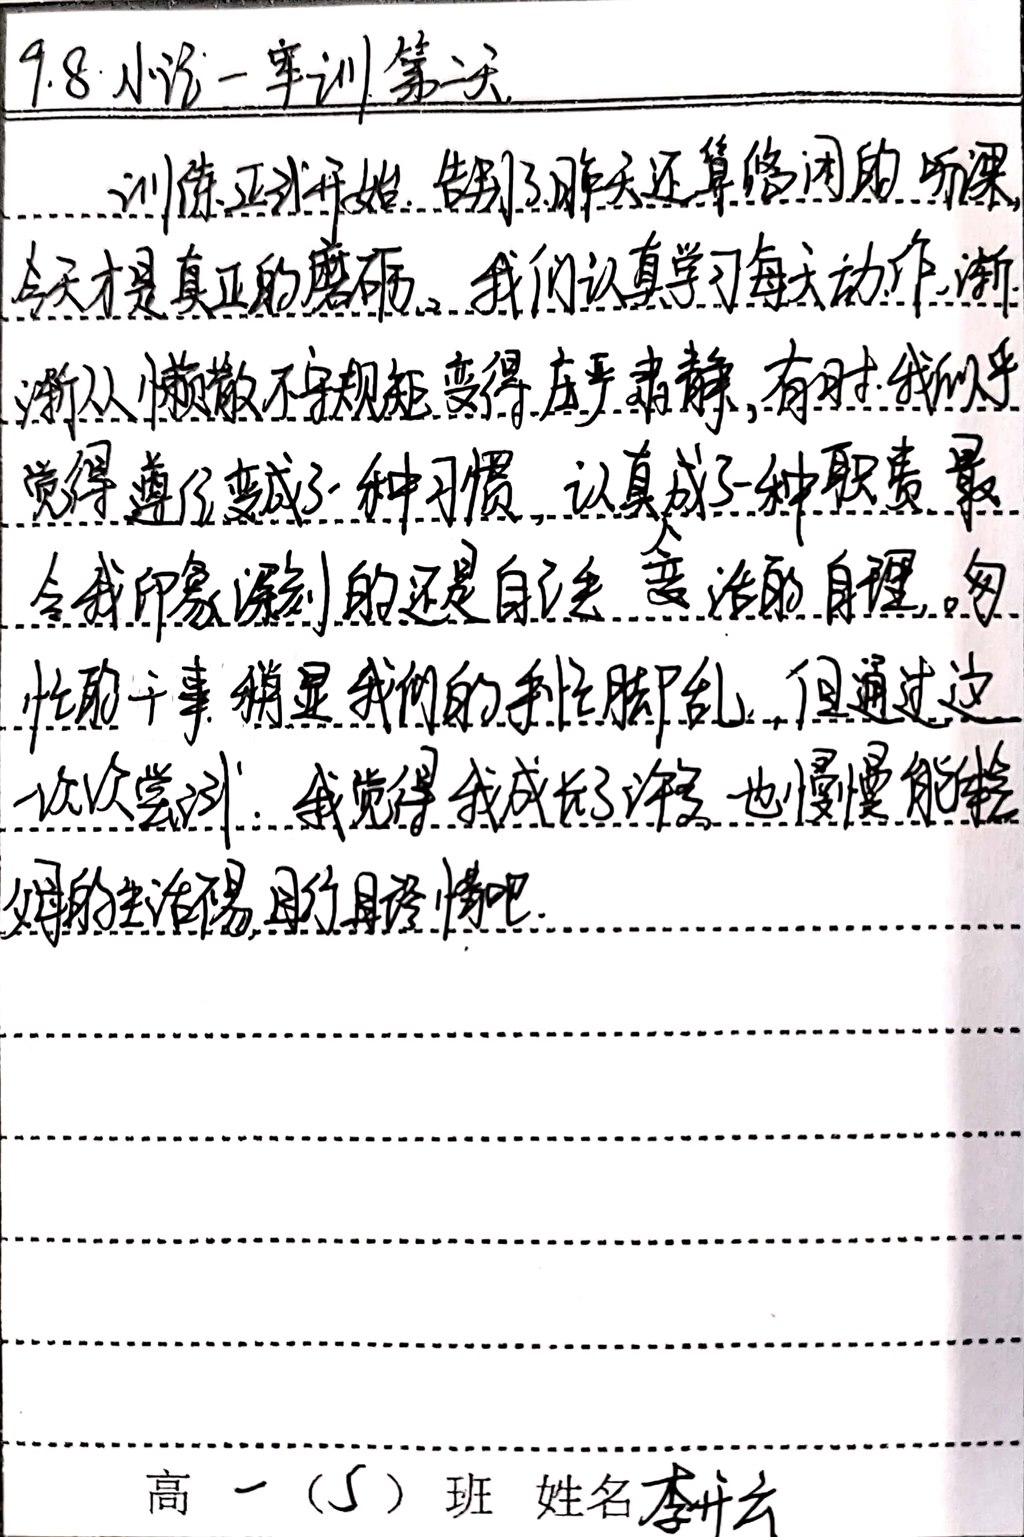 9.8. 小记 — 军训第二天
训练正式开始. 告别了昨天还算悠闲的听课,
今天才是真正的磨砺。我们认真学习每天动作, 渐
渐从懒散不守规矩变得庄严肃静, 有时我似乎
觉得遵从变成了一种习惯, 认真成了一种职责 最
令我印象深刻的还是自己 生活的自理。匆
忙的干事 稍显我们的手忙脚乱, 但通过这
一次次尝试. 我觉得我成长了许多, 也慢慢能体会
父母的生活不易, 且行且珍惜吧.
高一(5)班 姓名 李开云